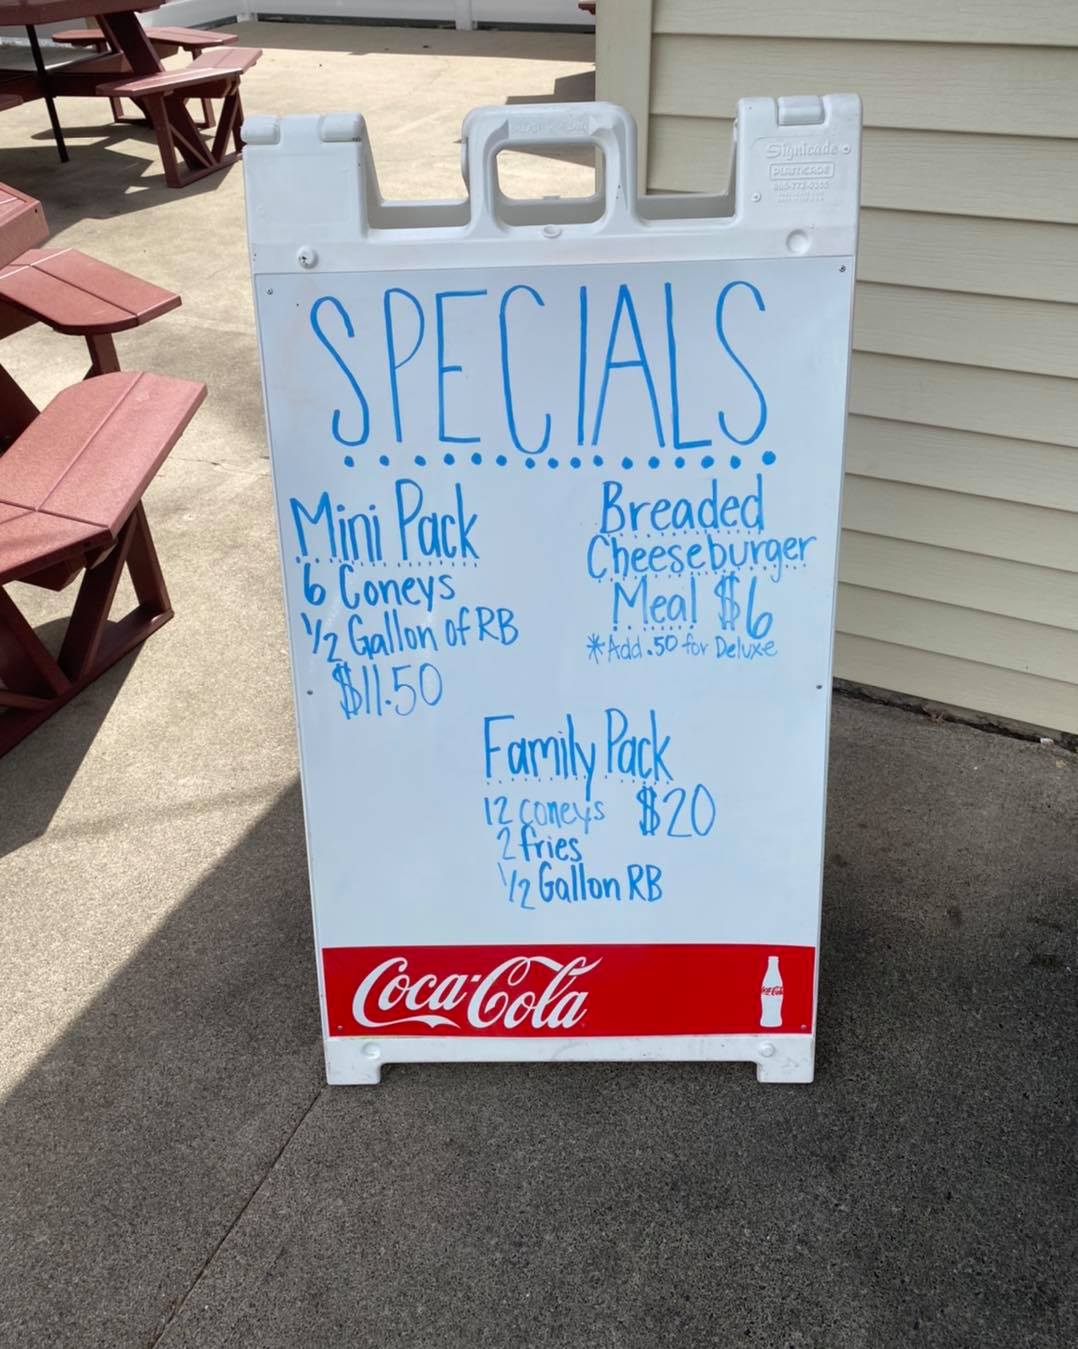 Signicade
PLASTICADE
SPECIALS
Mini Pack
6 Coneys
1/2 Gallon of RB
$11.50
Breaded
Cheeseburger
Meal $6
*Add .50 for Deluxe
Family Pack
12 coneys $20
2 fries
1/2 Gallon RB
Coca-Cola